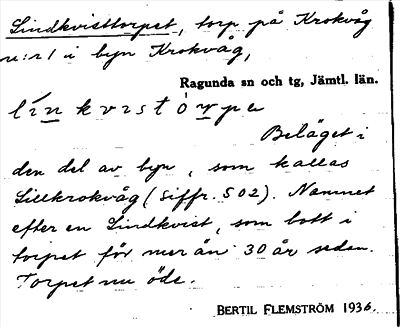 Lindkvisttorpet, torp på Krokvåg
nr:r 1 i byn Krokvåg,
Ragunda sn och tg, Jämtl. län.
línkvistòrpe
Beläget i
den del av byn, som kallas
Lillkrokvåg (siffr. 502). Namnet
efter en Lindkvist, som bott i
torpet för mer än 30 år sedan.
Torpet nu öde.
BERTIL FLEMSTRÖM 1936.